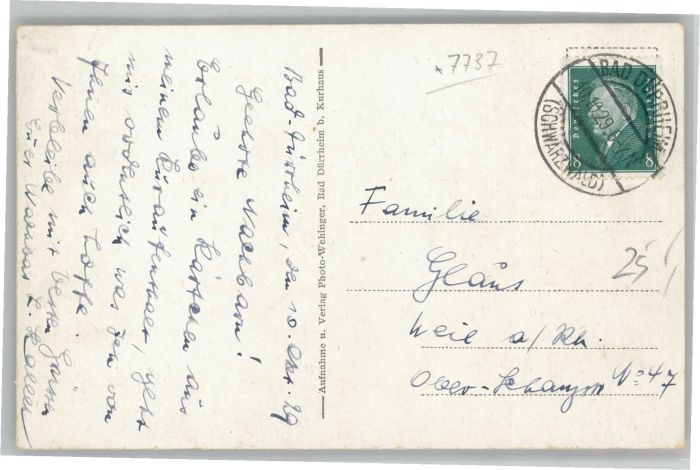 Bad-Dürrheim, den 10. Okt. 29
Geehrte Nachbarn!
Erlaube ein Kärtchen aus
meinem Kuraufenthalt, geht
mir ordentlich was ich von
Ihnen auch hoffe
Verbleibe mit besten Grüßen
Euer Nachbar
Aufnahme u. Verlag Photo-Wehinger, Bad Dürrheim b. Kurhaus
7737
BAD DÜRRHEIM
(SCHWARZWALD)
Deutsches Reich
8 8
Familie
Gläus
Weil a/Rh.
Ober-Schanzstr No 47
25